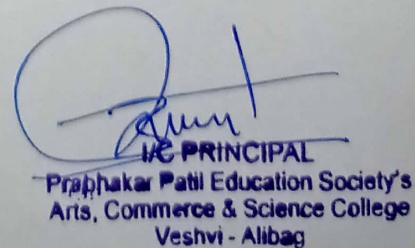 I/C PRINCIPAL
Prabhakar Patil Education Society's
Arts, Commerce & Science College
Veshvi - Alibag